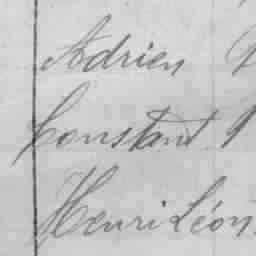 Adrien
Constant
Henri Léon